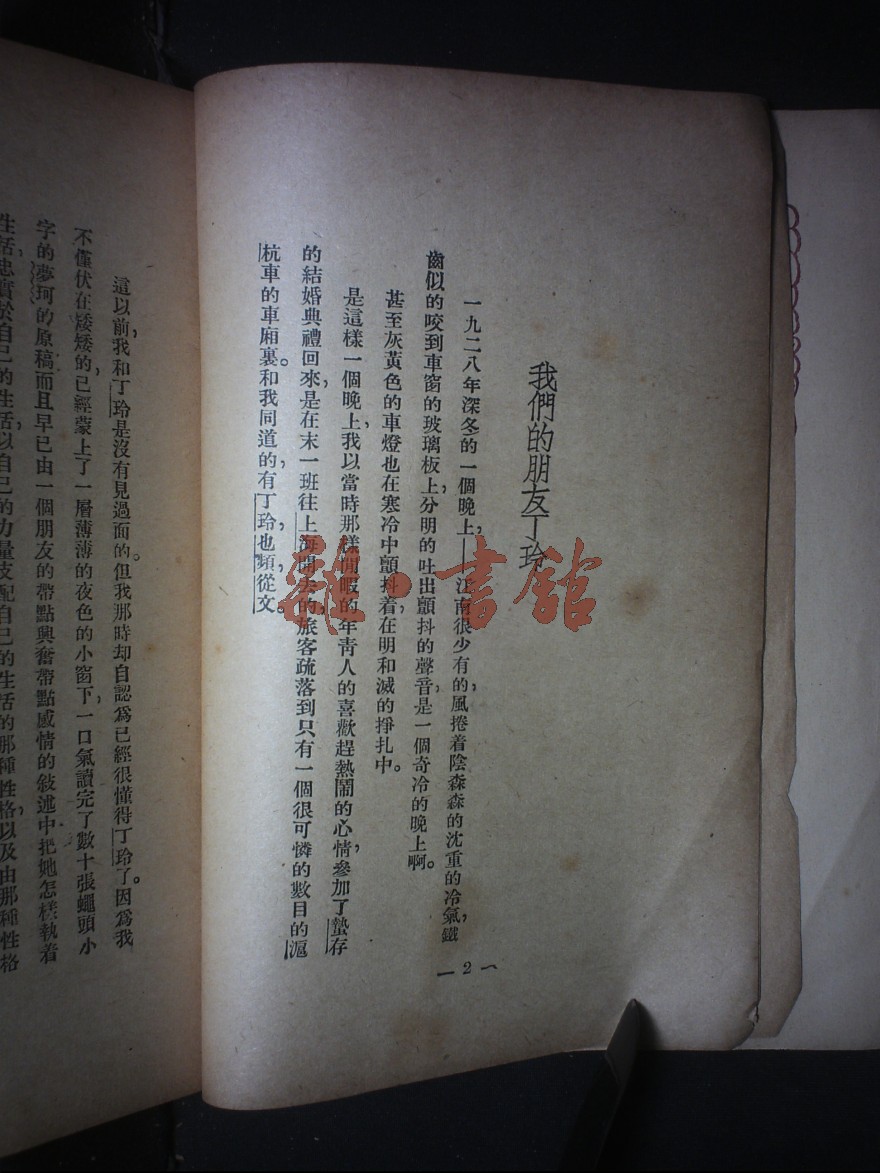 我們的朋友丁玲
一九二八年深冬的一個晚上,——江南很少有的,風捲着陰森森的沈重的冷氣,鐵
齒似的咬到車窗的玻璃板上,分明的吐出顫抖的聲音,是一個奇冷的晚上啊。
甚至灰黃色的車燈也在寒冷中顫抖着,在明和滅的掙扎中。
是這樣一個晚上,我以當時那樣閒暇的年靑人的喜歡趕熱鬧的心情,參加了蟄存
的結婚典禮回來,是在末一班往上海開去的,旅客疏落到只有一個很可憐的數目的滬
杭車的車廂裏。和我同道的,有丁玲,也頻,從文。
— 2 —
這以前,我和丁玲是沒有見過面的。但我那時却自認爲已經很懂得丁玲了。因爲我
不僅伏在矮矮的,已經蒙上了一層薄薄的夜色的小窗下,一口氣讀完了數十張蠅頭小
字的夢珂的原稿,而且早已由一個朋友的帶點興奮帶點感情的敍述中,把她怎樣執着
生活,忠實於自己的生活,以自己的力量支配自己的生活的那種性格,以及由那種性格
雜·書館